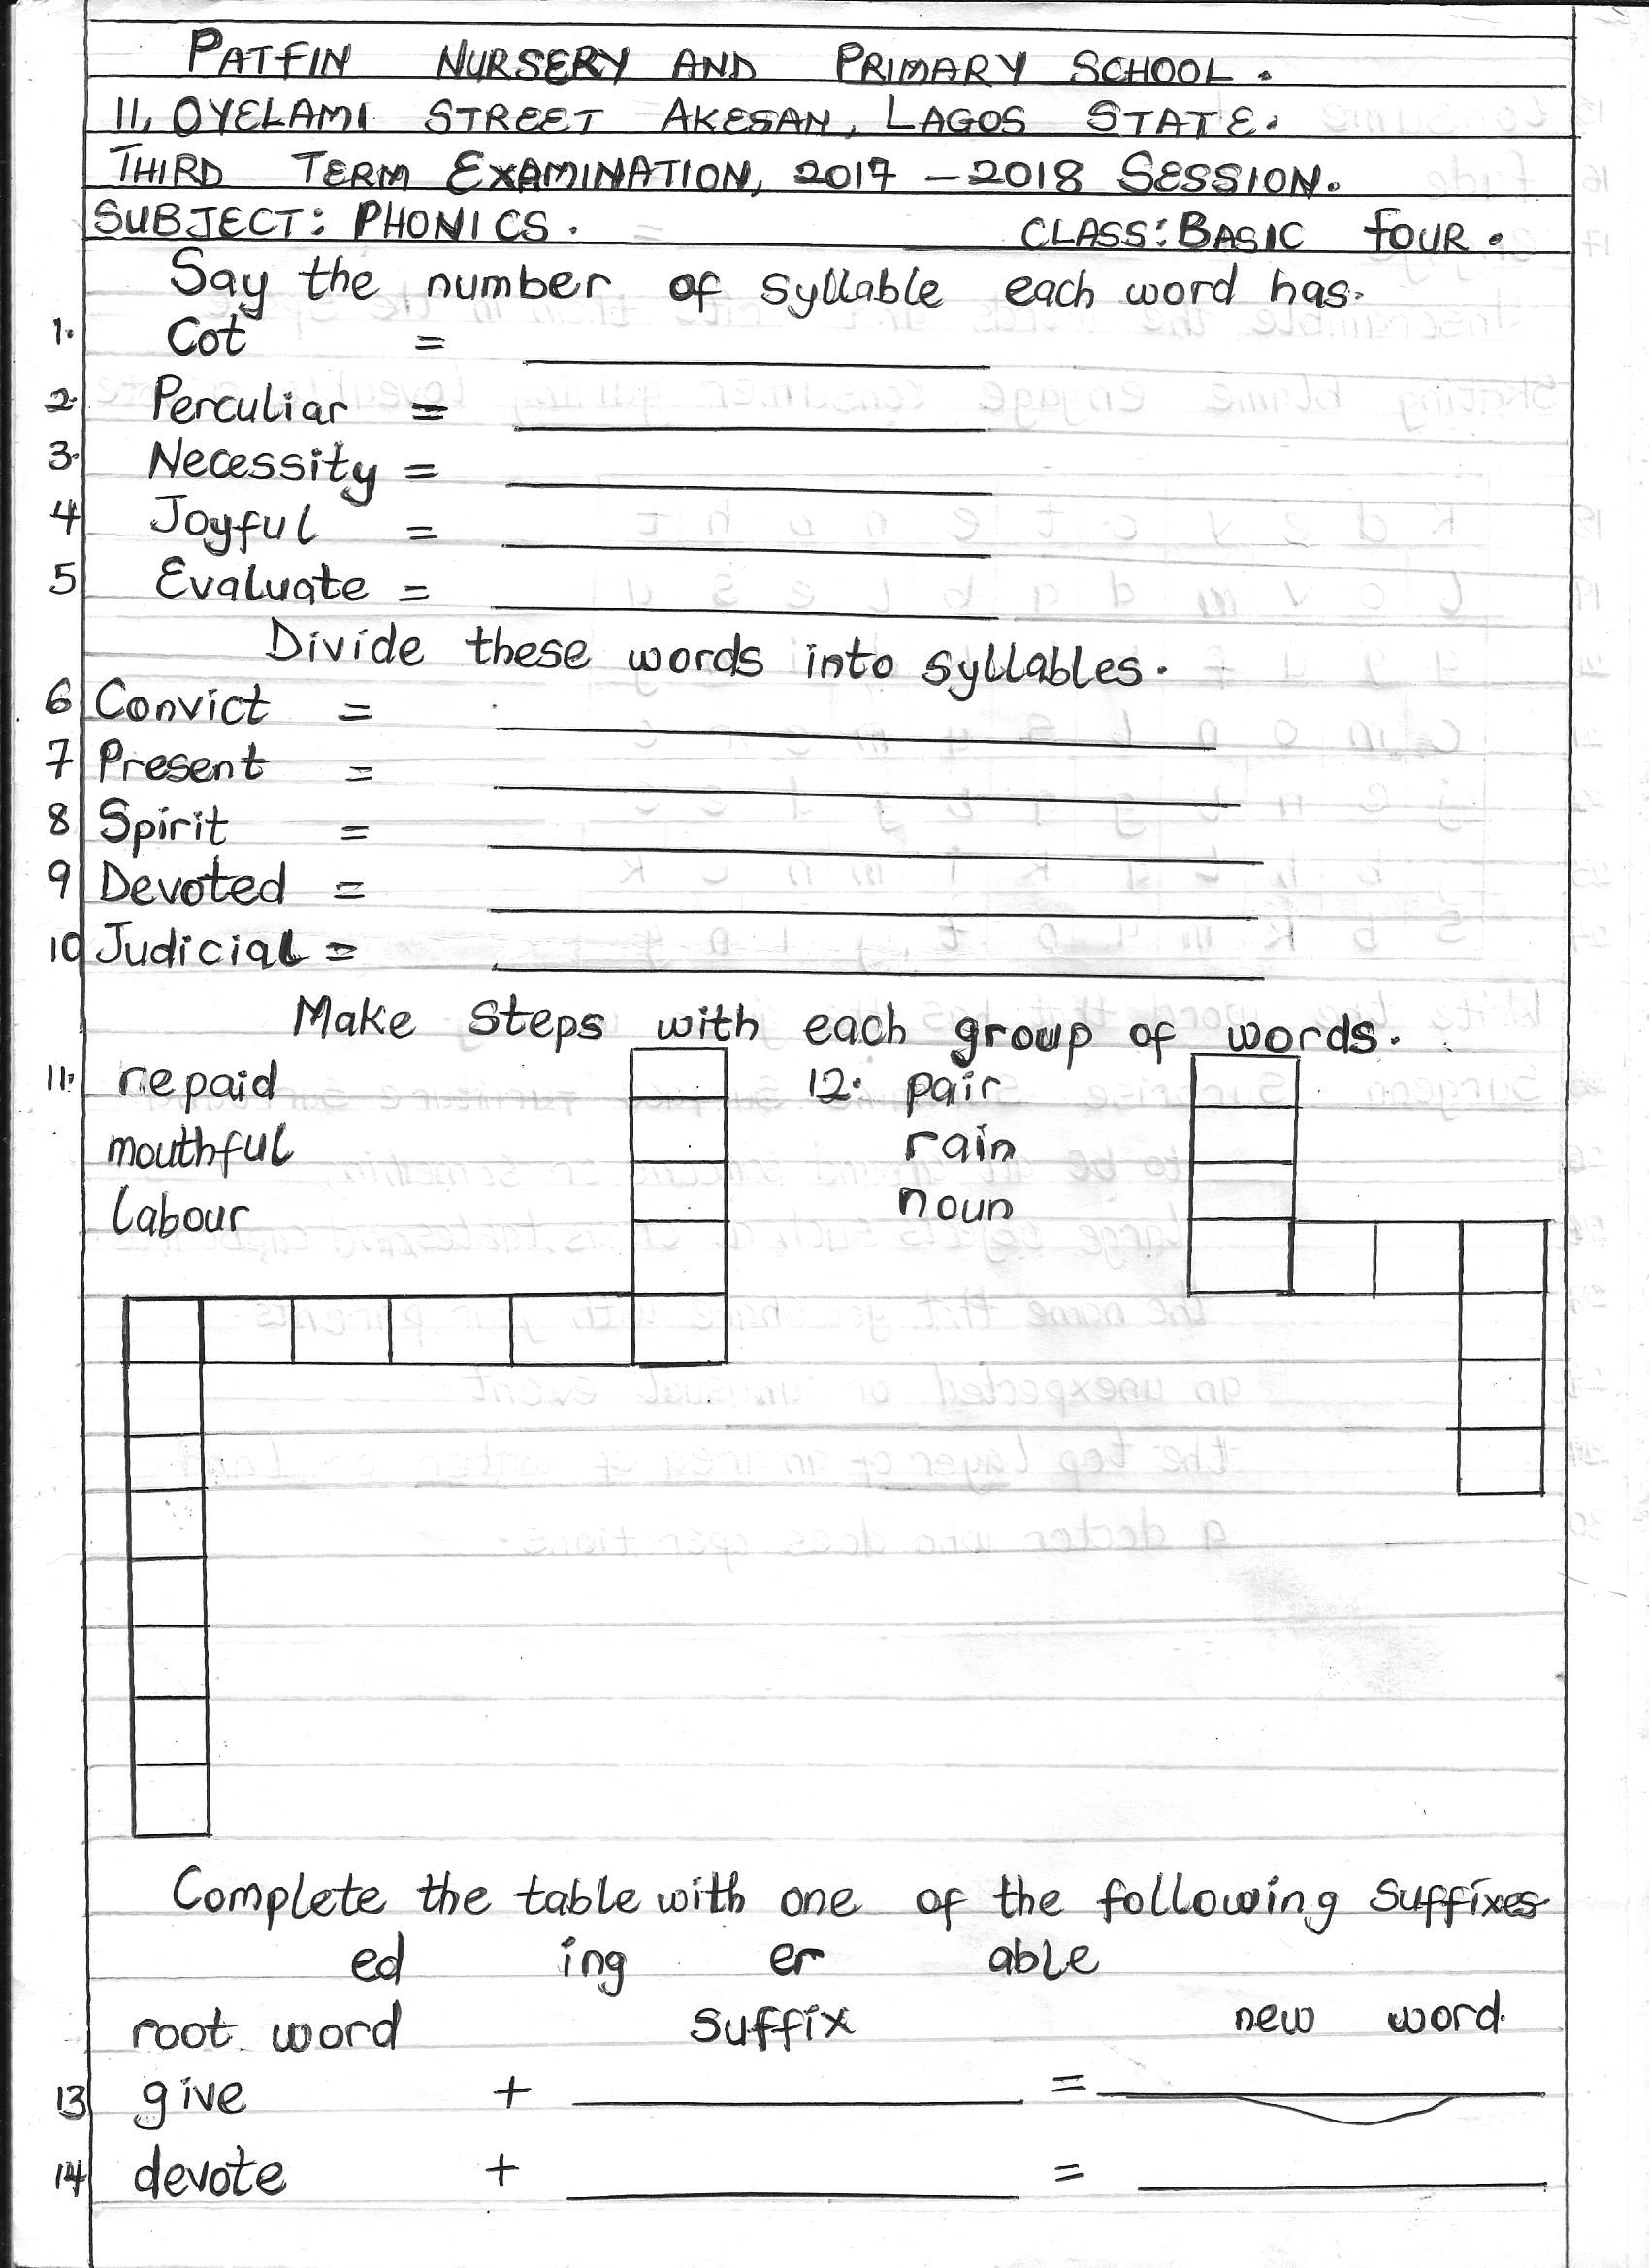 PATFIN NURSERY AND PRIMARY SCHOOL.
11, OYELAMI STREET AKESAN, LAGOS STATE.
THIRD TERM EXAMINATION, 2017 - 2018 SESSION.
SUBJECT: PHONICS. CLASS: BASIC FOUR.
Say the number of syllable each word has.
1. Cot = 
2. Perculiar = 
3. Necessity = 
4 Joyful = 
5 Evaluate = 
Divide these words into syllables.
6 Convict = 
7 Present = 
8 Spirit = 
9 Devoted = 
10 Judicial = 
Make steps with each group of words.
11. repaid 12. pair
mouthful rain
labour noun
Complete the table with one of the following suffixes
ed ing er able
root word suffix new word
13 give + =
14 devote + =